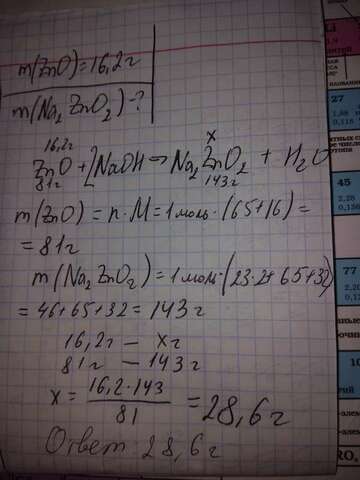 m(ZnO)=16,2г
m(Na₂ZnO₂)-?
16,2г x
ZnO+2NaOH→Na₂ZnO₂ + H₂O
81г 143г
m(ZnO)=n·M=1моль·(65+16)=
=81г
m(Na₂ZnO₂)=1моль·(23·2+65+32)
=46+65+32=143г
16,2г — xг
81г — 143г
x = 16,2·143 / 81 = 28,6г
Ответ: 28,6г
27
45
77